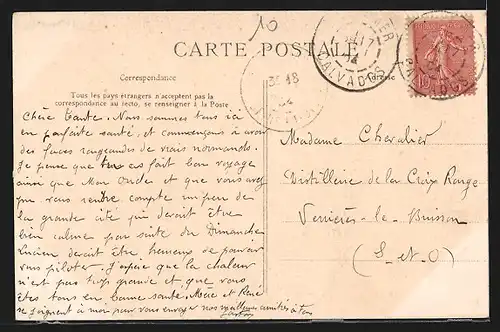 10
CARTE POSTALE
CALVADOS
Correspondance
Adresse
Tous les pays étrangers n'acceptent pas la
correspondance au recto, se renseigner à la Poste
Chère Tante. Nous sommes tous ici
en parfaite santé, et commençons à avoir
des faces rougeaudes de vrais normands.
Je pense que tu as fait bon voyage
ainsi que Mon Oncle et que vous avez
pu vous rendre compte un peu de
la grande cité qui devait être
bien calme par suite du Dimanche
Lucien devait être heureux de pouvoir
vous piloter. J'espère que la chaleur
n'est pas trop grande et que vous
êtes tous en bonne santé, Mère et René
se joignent à moi pour vous envoyer nos meilleures amitiés à tous
Madame Chevalier
Distillerie de la Croix Rouge
Verrières-le-Buisson
(S-et-O)